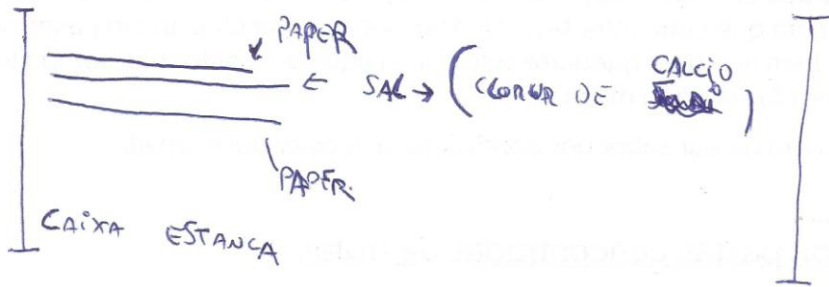 PAPER
E SAL → (CLORUR DE CALCIO)
PAPER.
CAIXA ESTANCA